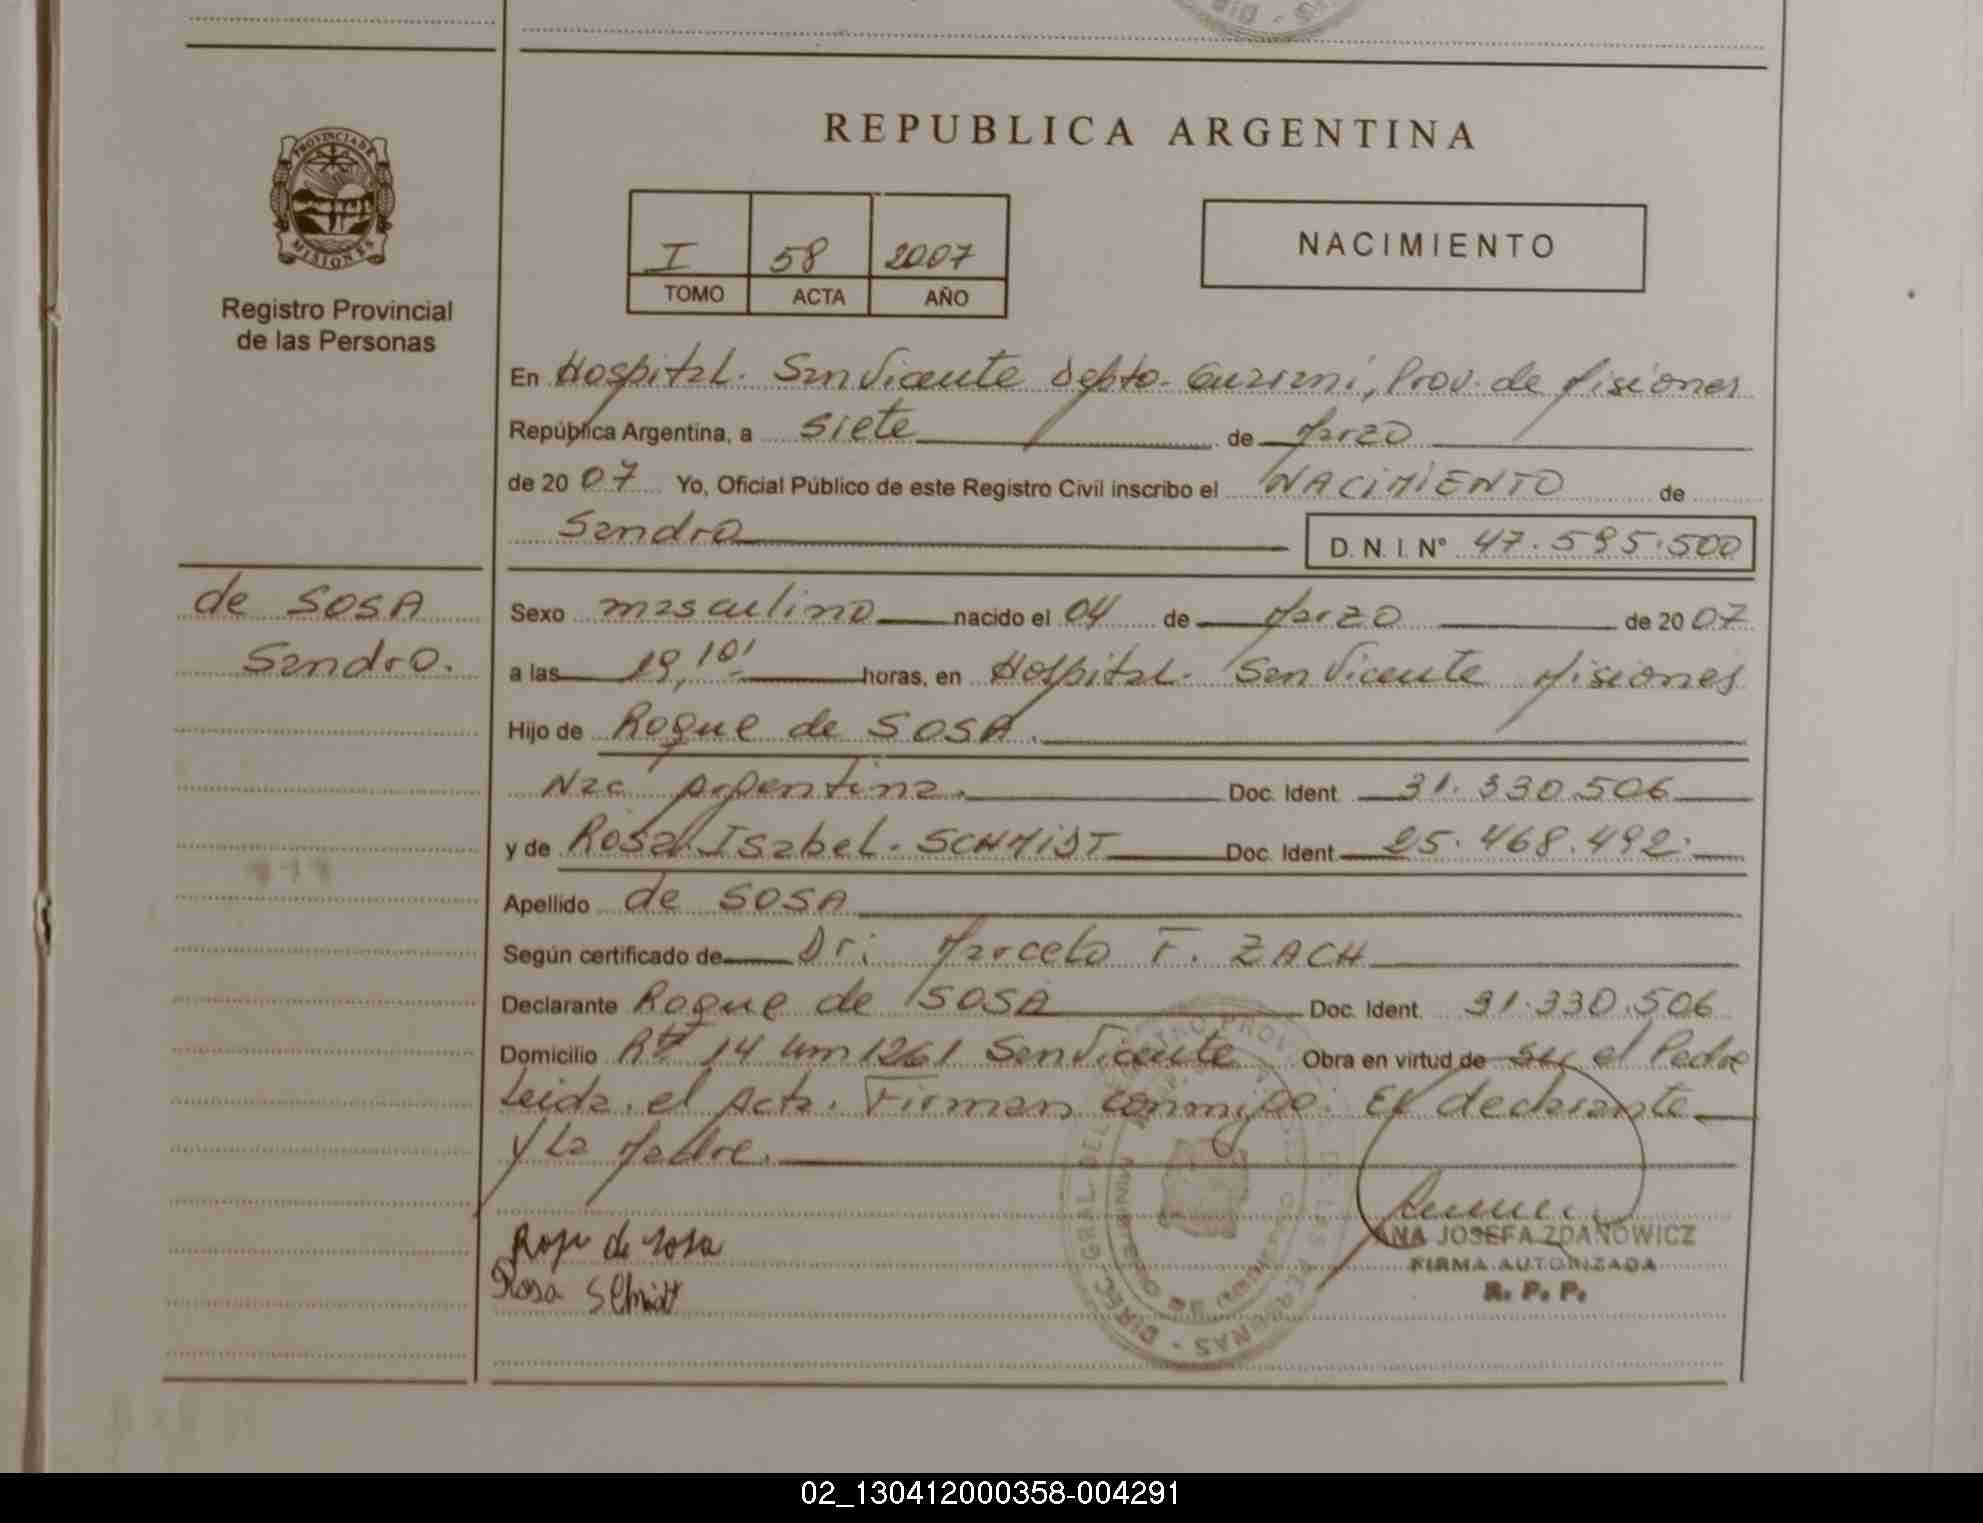 REPUBLICA ARGENTINA
PROVINCIA DE MISIONES
Registro Provincial
de las Personas
I 58 2007
TOMO ACTA AÑO
NACIMIENTO
En Hospital. San Vicente Depto. Guarani, Prov. de Misiones
República Argentina, a siete de Marzo
de 20 07 Yo, Oficial Público de este Registro Civil inscribo el NACIMIENTO de
Sandro D. N. I. Nº 47.595.500
de SOSA
Sandro.
Sexo masculino nacido el 04 de Marzo de 20 07
a las 19,10' horas, en Hospital. San Vicente Misiones
Hijo de Roque de SOSA.
Nac Argentina. Doc. Ident. 31.330.506
y de Rosa Isabel. SCHMIDT Doc. Ident. 25.468.492.
Apellido de SOSA
Según certificado de Dr: Marcelo F. ZACH
Declarante Roque de SOSA Doc. Ident. 31.330.506
Domicilio 14 km 1261 San Vicente Obra en virtud de el Padre
Leida. el Acta. Firman conmigo: El declarante
y La Madre.
de sosa
Rosa Schmidt
ANA JOSEFA ZDANOWICZ
FIRMA AUTORIZADA
R. P. P.
02_130412000358-004291